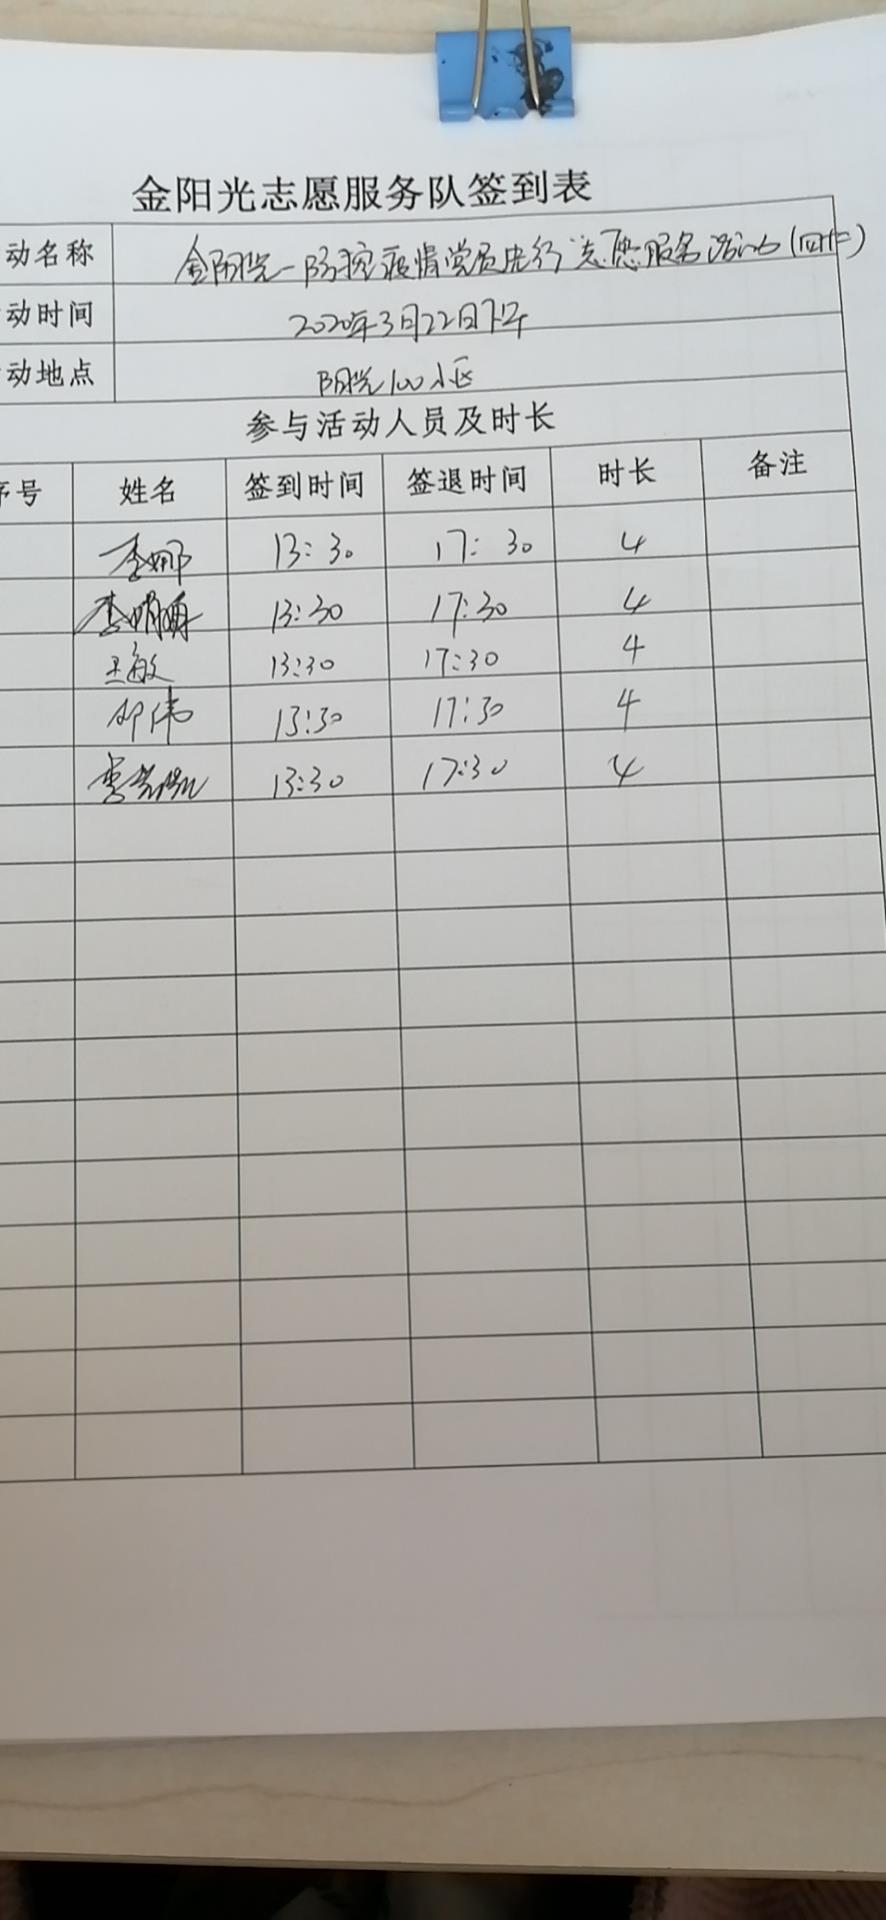 金阳光志愿服务队签到表
动名称 金阳光一防控疫情党员先行志愿服务活动
动时间 2020年3月22日下午
动地点 阳光100小区
参与活动人员及时长
序号 姓名 签到时间 签退时间 时长 备注
李娜 13:30 17:30 4
13:30 17:30 4
王敏 13:30 17:30 4
邓伟 13:30 17:30 4
13:30 17:30 4